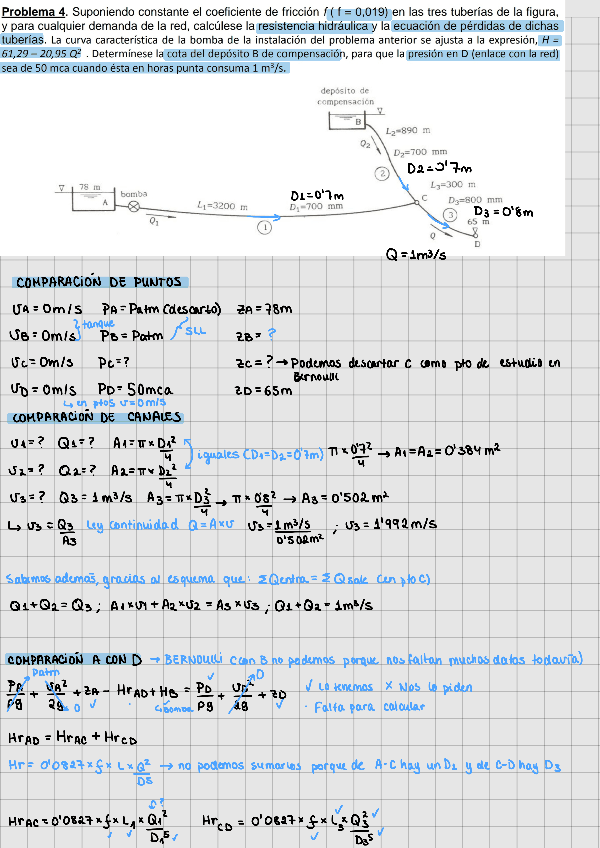 Problema 4. Suponiendo constante el coeficiente de fricción f ( f = 0,019) en las tres tuberías de la figura,
y para cualquier demanda de la red, calcúlese la resistencia hidráulica y la ecuación de pérdidas de dichas
tuberías. La curva característica de la bomba de la instalación del problema anterior se ajusta a la expresión, H =
61,29 – 20,95 Q² . Determínese la cota del depósito B de compensación, para que la presión en D (enlace con la red)
sea de 50 mca cuando ésta en horas punta consuma 1 m³/s.
depósito de
compensación
B
L₂=890 m
Q₂
D₂=700 mm
2
D2=0'7m
78 m
A
bomba
Q₁
L₁=3200 m
D1=0'7m
D₁=700 mm
1
C
L₃=300 m
D₃=800 mm
D3=0'8m
3
65 m
Q
D
Q=1m3/s
COMPARACIÓN DE PUNTOS
UA=0m/s PA=Patm (descarto) ZA=78m
tanque
SLL
UB=0m/s PB=Patm ZB= ?
UC=0m/s PC=? ZC=? → Podemos descartar C como pto de estudio en
Bernoulli
UD=0m/s PD=50mca ZD=65m
↳ en ptos v=0m/s
COMPARACIÓN DE CANALES
U1=? Q1=? A1=π×D1²/4
iguales (D1=D2=0'7m) π×0'7²/4 → A1=A2=0'384m²
U2=? Q2=? A2=π×D2²/4
U3=? Q3=1m³/s A3=π×D3²/4 → π×0'8²/4 → A3=0'502m²
↳ U3=Q3/A3 Ley continuidad Q=A×U U3=1m³/s/0'502m² ; U3=1'992m/s
Sabemos además, gracias al esquema que: ΣQentra=ΣQsale (en pto C)
Q1+Q2=Q3 ; A1×U1+A2×U2=A3×U3 ; Q1+Q2=1m³/s
COMPARACIÓN A CON D → BERNOULLI (con B no podemos porque nos faltan muchos datos todavía)
Patm
0
PA/ρg + UA²/2g + ZA - HrAD + HB = PD/ρg + UD²/2g + ZD
✓ Lo tenemos × Nos lo piden
0
↳bomba
· Falta para calcular
HrAD = HrAC + HrCD
Hr= 0'0827×f×L×Q²/D5 → no podemos sumarlos porque de A-C hay un D1 y de C-D hay D3
HrAC=0'0827×f×L1×Q1²/D1⁵ HrCD = 0'0827×f×L3×Q3²/D3⁵